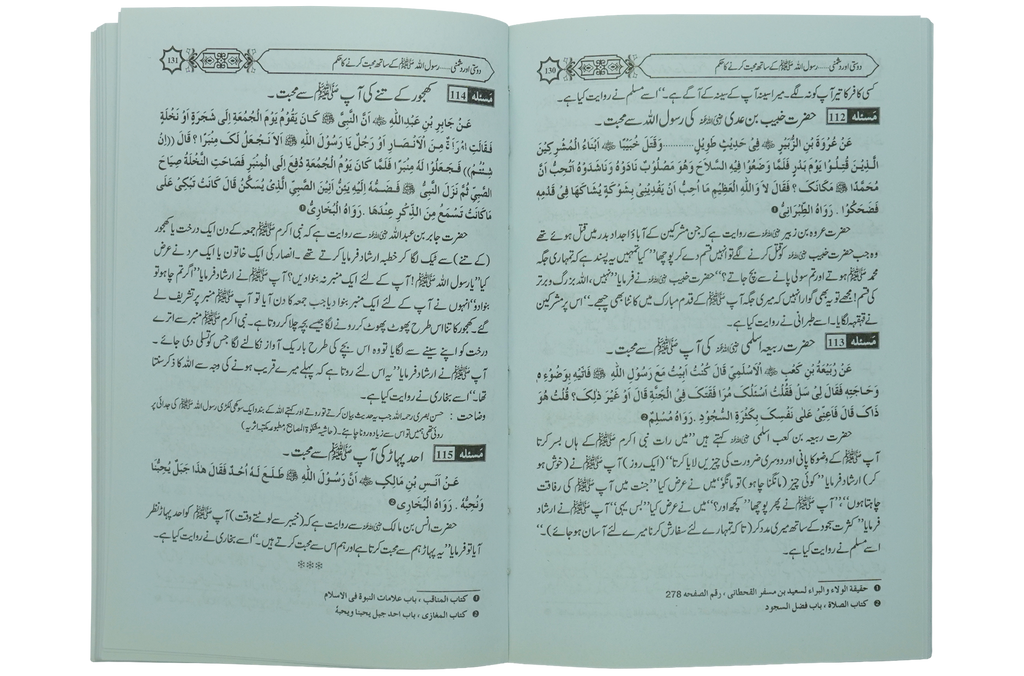 130
دوستی اور دشمنی.....رسول اللہ ﷺ کے ساتھ محبت کرنے کا حکم
کسی کافر کا تیر آپ کو نہ لگے۔ میرا سینہ آپ کے سینہ کے آگے ہے۔“ اسے مسلم نے روایت کیا ہے۔
مَسئلہ 112 حضرت خبیب بن عدی رضی اللہ عنہ کی رسول اللہ سے محبت۔
عَنْ عُرْوَةَ بْنِ الزُّبَيْرِ ؓ فِىْ حَدِيْثٍ طَوِيْلٍ..........وَقَتَلَ خُبَيْبًا ؓ اَبْنَاءُ الْمُشْرِكِيْنَ
الَّذِيْنَ قُتِلُوْا يَوْمَ بَدْرٍ فَلَمَّا وَضَعُوْا فِيْهِ السِّلَاحَ وَهُوَ مَصْلُوْبٌ نَادَوْهُ وَنَاشَدُوْهُ اَتُحِبُّ اَنَّ
مُحَمَّدًا ﷺ مَكَانَكَ ؟ فَقَالَ لاَ وَاللّٰهِ الْعَظِيْمِ مَا اُحِبُّ اَنْ يَفْدِيَنِىْ بِشَوْكَةٍ يُشَاكُهَا فِىْ قَدَمِهٖ
فَضَحِكُوْا . رَوَاهُ الطِّبْرَانِىُّ ❶
حضرت عروہ بن زبیر رضی اللہ عنہ سے روایت ہے کہ جن مشرکین کے آباؤ اجداد بدر میں قتل ہوئے تھے
وہ جب حضرت خبیب رضی اللہ عنہ کو قتل کرنے لگے تو انہیں قسم دے کر پوچھا ”کیا تمہیں یہ پسند ہے کہ تمہاری جگہ
محمد ﷺ ہوتے اور تم سولی پانے سے بچ جاتے؟“ حضرت خبیب رضی اللہ عنہ نے فرمایا ”نہیں، اللہ بزرگ و برتر
کی قسم! مجھے تو یہ بھی گوارا نہیں کہ میری جگہ آپ ﷺ کے قدم مبارک میں کانٹا بھی چبھے۔“ اس پر مشرکین
نے قہقہہ لگایا۔ اسے طبرانی نے روایت کیا ہے۔
مَسئلہ 113 حضرت ربیعہ اسلمی رضی اللہ عنہ کی آپ ﷺ سے محبت۔
عَنْ رَبِيْعَةَ بْنِ كَعْبٍ ؓ الْاَسْلَمِيِّ قَالَ كُنْتُ اَبِيْتُ مَعَ رَسُوْلِ اللّٰهِ ﷺ فَاَتَيْهِ بِوَضُوْءِهٖ
وَحَاجَتِهٖ فَقَالَ لِىْ سَلْ فَقُلْتُ اَسْئَلُكَ مُرَافَقَتَكَ فِى الْجَنَّةِ قَالَ اَوْ غَيْرَ ذٰلِكَ؟ قُلْتُ هُوَ
ذَاكَ قَالَ فَاَعِنِّىْ عَلٰى نَفْسِكَ بِكَثْرَةِ السُّجُوْدِ .رَوَاهُ مُسْلِمٌ ❷
حضرت ربیعہ بن کعب اسلمی رضی اللہ عنہ کہتے ہیں ”میں رات نبی اکرم ﷺ کے ہاں بسر کرتا
آپ ﷺ کے وضو کا پانی اور دوسری ضرورت کی چیزیں لایا کرتا“ (ایک روز) آپ ﷺ نے (خوش ہو
کر) ارشاد فرمایا ”کوئی چیز (مانگنا چاہو) تو مانگو“ میں نے عرض کیا ”جنت میں آپ ﷺ کی رفاقت
چاہتا ہوں“، ”آپ ﷺ نے پھر پوچھا ”کچھ اور؟“ میں نے عرض کیا ”بس یہی“ آپ ﷺ نے ارشاد
فرمایا ”کثرت سجود کے ساتھ میری مدد کر (تاکہ تمہارے لئے سفارش کرنا میرے لئے آسان ہو جائے)۔“
اسے مسلم نے روایت کیا ہے۔
❶ حقیقة الولاء والبراء لسعید بن مسفر القحطانی ، رقم الصفحہ 278
❷ کتاب الصلاة ، باب فضل السجود
131
دوستی اور دشمنی.....رسول اللہ ﷺ کے ساتھ محبت کرنے کا حکم
مَسئلہ 114 کھجور کے تنے کی آپ ﷺ سے محبت۔
عَنْ جَابِرِ بْنِ عَبْدِ اللّٰهِ ؓ اَنَّ النَّبِىَّ ﷺ كَانَ يَقُوْمُ يَوْمَ الْجُمُعَةِ اِلٰى شَجَرَةٍ اَوْ نَخْلَةٍ
فَقَالَتِ امْرَاَةٌ مِنَ الْاَنْصَارِ اَوْ رَجُلٌ يَا رَسُوْلَ اللّٰهِ ﷺ اَلاَ نَجْعَلُ لَكَ مِنْبَرًا ؟ قَالَ ((اِنْ
شِئْتُمْ)) فَجَعَلُوْا لَهُ مِنْبَرًا فَلَمَّا كَانَ يَوْمُ الْجُمُعَةِ دُفِعَ اِلَى الْمِنْبَرِ فَصَاحَتِ النَّخْلَةُ صِيَاحَ
الصَّبِىِّ ثُمَّ نَزَلَ النَّبِىُّ ﷺ فَضَمَّهُ اِلَيْهِ يَئِنُّ اَنِيْنَ الصَّبِىِّ الَّذِىْ يُسَكَّنُ قَالَ كَانَتْ تَبْكِىْ عَلٰى
مَا كَانَتْ تَسْمَعُ مِنَ الذِّكْرِ عِنْدَهَا . رَوَاهُ الْبُخَارِىُّ ❶
حضرت جابر بن عبداللہ رضی اللہ عنہ سے روایت ہے کہ نبی اکرم ﷺ جمعہ کے دن ایک درخت یا کھجور
(کے تنے) سے ٹیک لگا کر خطبہ ارشاد فرمایا کرتے تھے۔ انصار کی ایک خاتون یا ایک مرد نے عرض
کیا ”یا رسول اللہ ﷺ! آپ کے لئے ایک منبر نہ بنوا دیں؟ آپ ﷺ نے ارشاد فرمایا ”اگر تم چاہو تو
بنوا دو“ انہوں نے آپ کے لئے ایک منبر بنوا دیا جب جمعہ کا دن آیا تو آپ ﷺ منبر پر تشریف لے
گئے۔ کھجور کا تنا اس طرح پھوٹ پھوٹ کر رونے لگا جیسے بچہ چلا کر روتا ہے۔ نبی اکرم ﷺ منبر سے اترے
درخت کو اپنے سینے سے لگایا تو وہ اس بچے کی طرح باریک آواز نکالنے لگا جس کو تسلی دی جائے۔
آپ ﷺ نے ارشاد فرمایا ”یہ اس لئے روتا ہے کہ پہلے میرے قریب ہونے کی وجہ سے اللہ کا ذکر سنتا
تھا۔“ اسے بخاری نے روایت کیا ہے۔
وضاحت : حسن بصری رحمہ اللہ جب یہ حدیث بیان کرتے تو روتے اور کہتے اللہ کے بندو ایک سوکھی لکڑی رسول اللہ ﷺ کی جدائی پر
روتی تھی ہمیں تو اس سے زیادہ رونا چاہئے۔ (حاشیہ مشکوٰۃ المصابیح مطبوعہ مکتبہ اثریہ)
مَسئلہ 115 احد پہاڑ کی آپ ﷺ سے محبت۔
عَنْ اَنَسِ بْنِ مَالِكٍ ؓ اَنَّ رَسُوْلَ اللّٰهِ ﷺ طَلَعَ لَهُ اُحُدٌ فَقَالَ هٰذَا جَبَلٌ يُحِبُّنَا
وَنُحِبُّهُ . رَوَاهُ الْبُخَارِىُّ ❷
حضرت انس بن مالک رضی اللہ عنہ سے روایت ہے کہ (خیبر سے لوٹتے وقت) آپ ﷺ کو احد پہاڑ نظر
آیا تو فرمایا ”یہ پہاڑ ہم سے محبت کرتا ہے اور ہم اس سے محبت کرتے ہیں۔“ اسے بخاری نے روایت کیا ہے۔
***
❶ کتاب المناقب ، باب علامات النبوة فی الاسلام
❷ کتاب المغازی ، باب احد جبل یحبنا ونحبہ